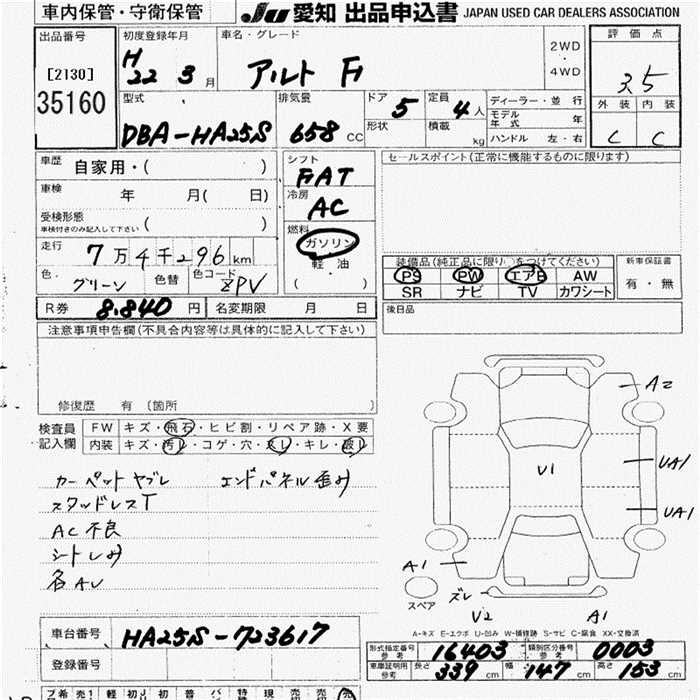 車内保管・守衛保管
JU 愛知 出品申込書 JAPAN USED CAR DEALERS ASSOCIATION
出品番号
[2130]
35160
初度登録年月
H 22 3月
車名・グレード
アルト F
2WD
・
4WD
評価点
3.5
外装 内装
C C
型式
DBA-HA25S
排気量
658cc
ドア 5
形状
定員 4人
積載 kg
ディーラー・並行
モデル年式 年
ハンドル 左・右
車歴 自家用・( )
車検 年 月( 日)
受検形態
車検付きのみ記入して下さい ( )
走行 7万4千296km
色 グリーン 色替 色コード ZPV
シフト
FAT
冷房
AC
燃料
ガソリン
軽・油
( )
セールスポイント(正常に機能するものに限ります)
装備品(純正品に限り○をつけてください)
PS PW エアB AW
SR ナビ TV カワシート
新車保証書
有・無
R券 8.840円 名変期限 月 日
後日品
注意事項申告欄(不具合内容等は具体的に記入して下さい)
修復歴 有 (箇所 )
検査員記入欄
FW キズ・飛石・ヒビ割・リペア跡・X要
内装 キズ・汚れ・コゲ・穴・スレ・キレ・破レ
カーペットヤブレ エンドパネル歪み
スタッドレスT
AC不良
シートしみ
各AU
A2
V1
UA1
UA1
A1
スペア
ズレ
U2 A1
A-キズ E-エクボ U-凹み W-補修跡 S-サビ C-腐食 XX-交換済
車台番号 HA25S-723617
登録番号
形式指定番号 参考 16403 類別区分番号 参考 0003
車庫証明用 参考 長さ 339cm 幅 147cm 高さ 153cm